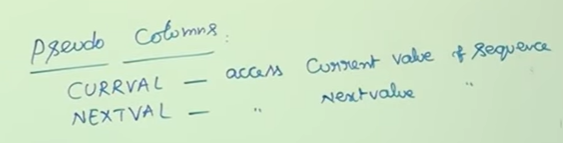 Pseudo Columns:
CURRVAL — access Current value of sequence
NEXTVAL — " Nextvalue "